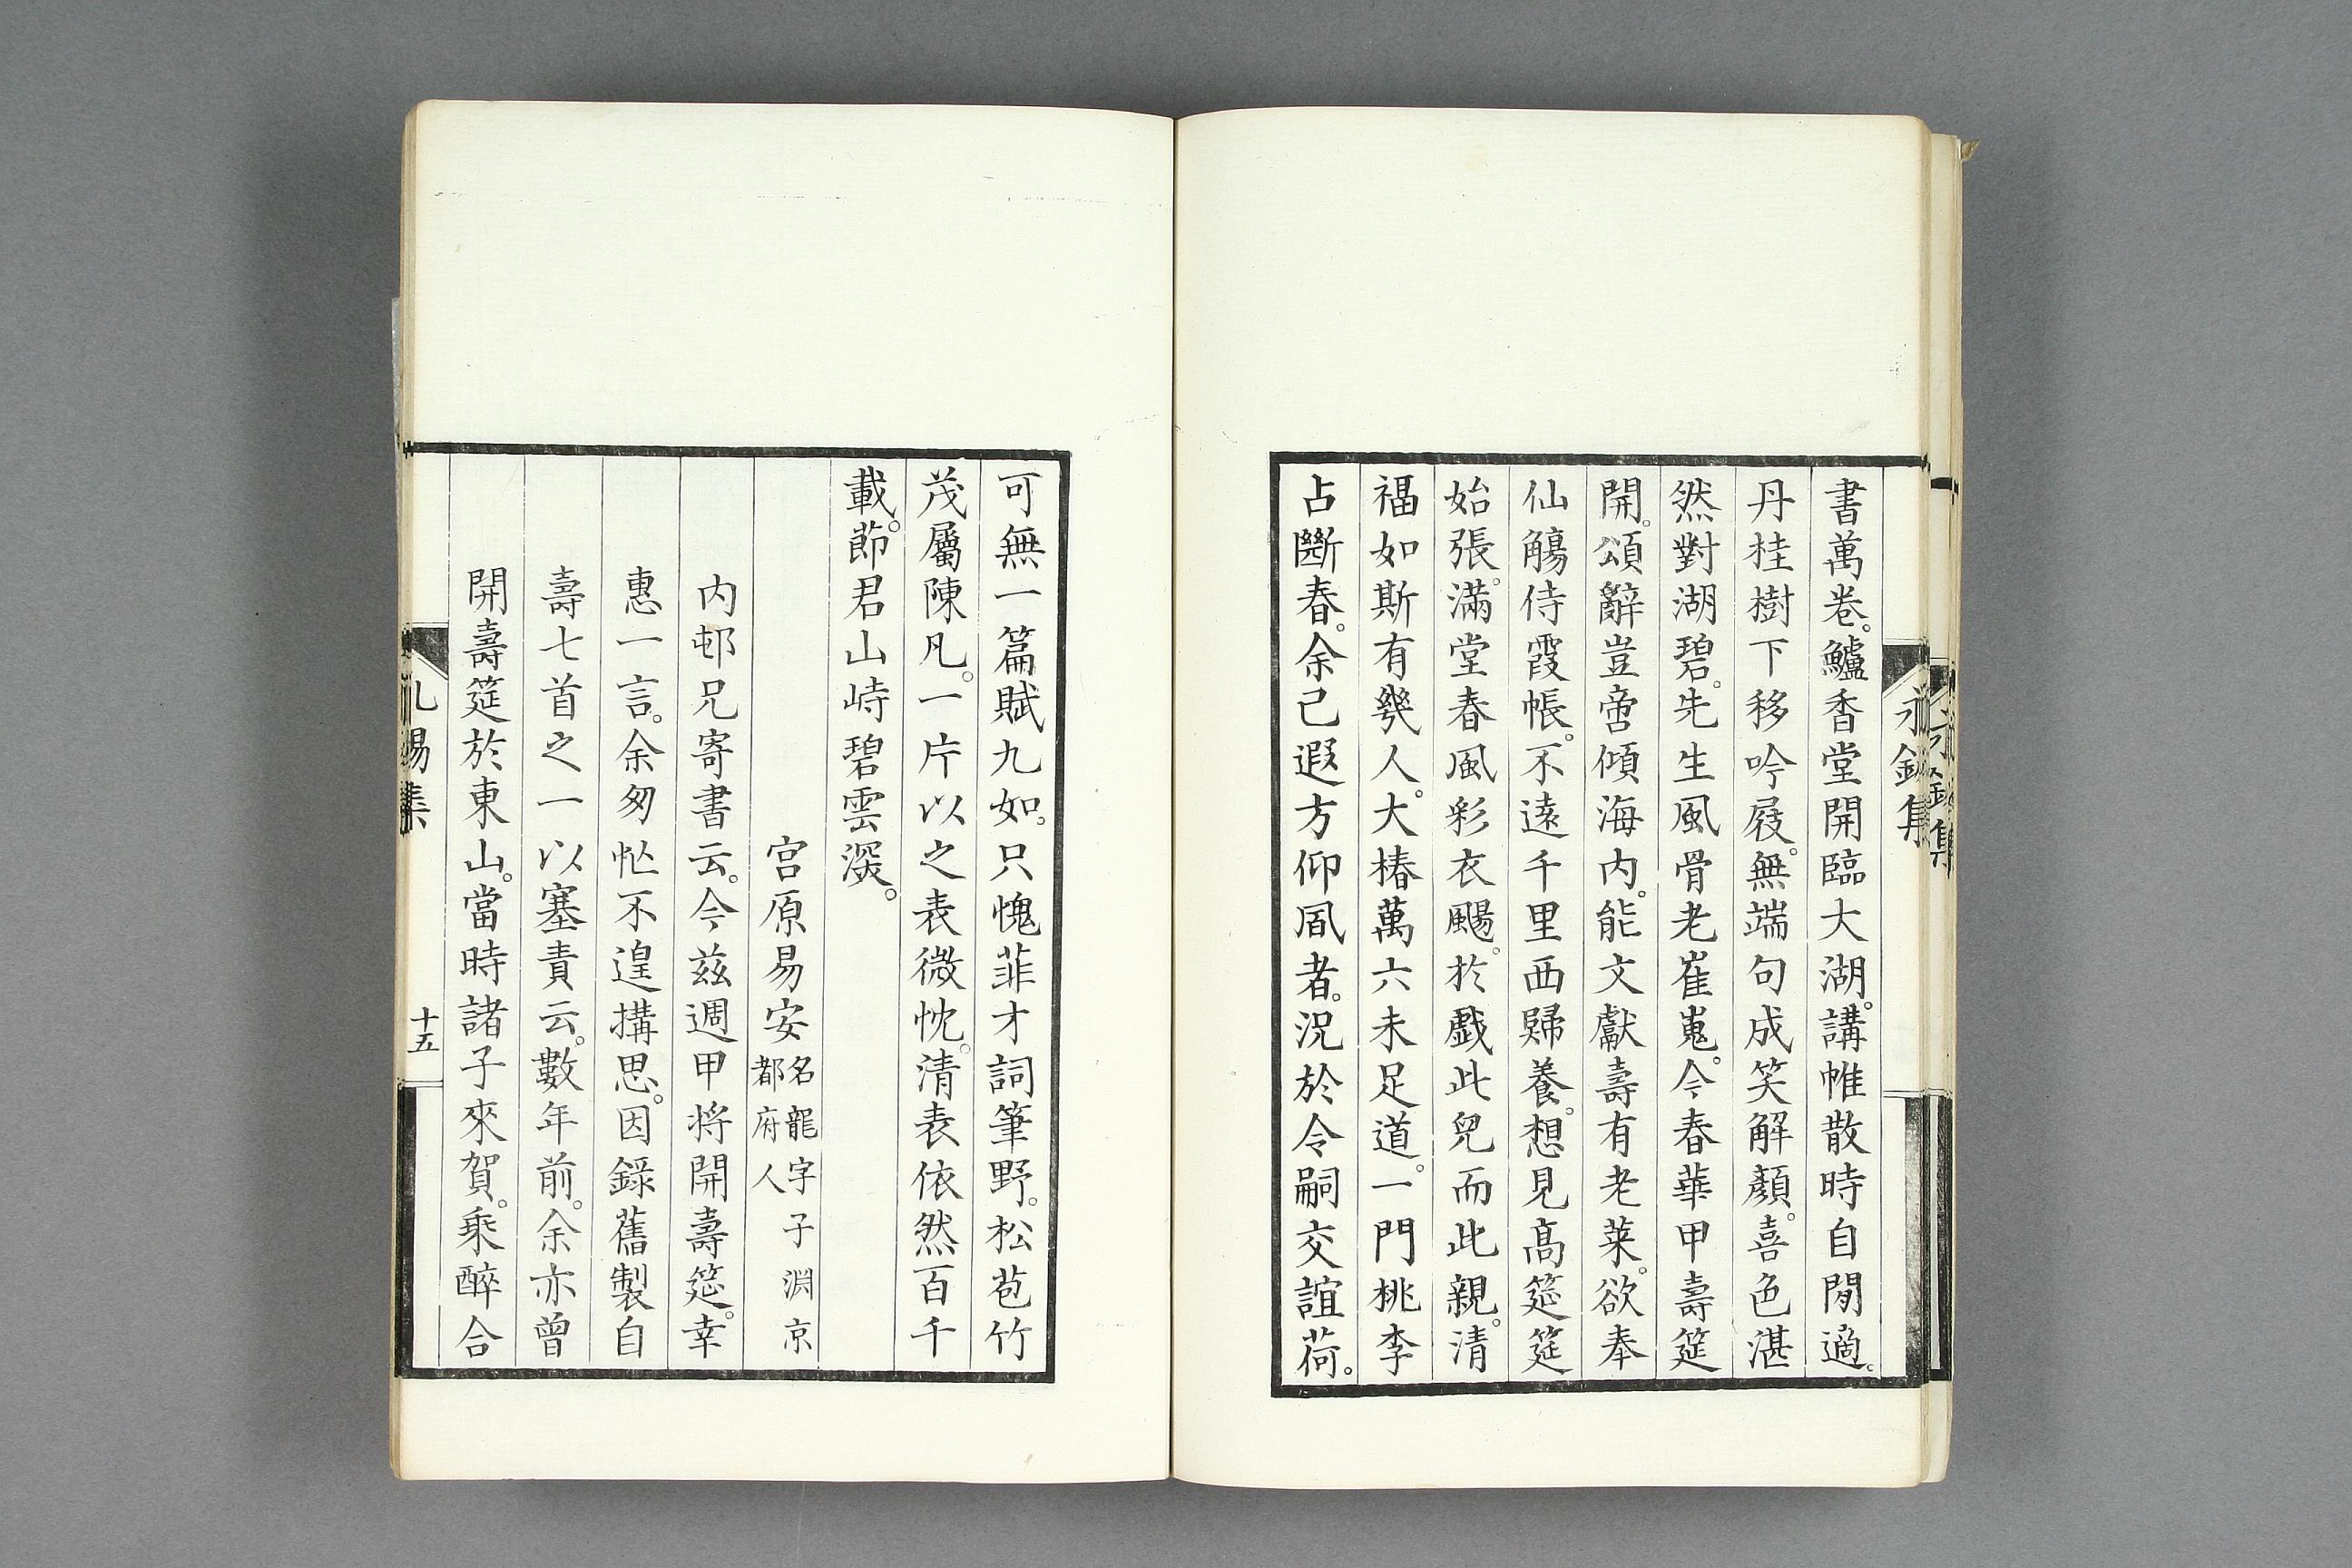 書萬卷。鱸香堂開臨大湖。講帷散時自閒適。
丹桂樹下移吟屐。無端句成笑解顏。喜色湛
然對湖碧。先生風骨老崔嵬。今春華甲壽筵
開。頌辭豈啻傾海內。能文獻壽有老萊。欲奉
仙觴侍霞帳。不遠千里西歸養。想見高筵筵
始張。滿堂春風彩衣颺。於戲此兒而此親。清
福如斯有幾人。大椿萬六未足道。一門桃李
占斷春。余已遐方仰風者。況於令嗣交誼荷。
可無一篇賦九如。只愧菲才詞筆野。松苞竹
茂屬陳凡。一片以之表微忱。清表依然百千
載。節君山峙碧雲深。
宮原易安名龍字子淵京都府人
內邨兄寄書云。今茲週甲將開壽筵。幸
惠一言。余匆忙不遑搆思。因錄舊製自
壽七首之一以塞責云。數年前。余亦曾
開壽筵於東山。當時諸子來賀。乘醉合
十五